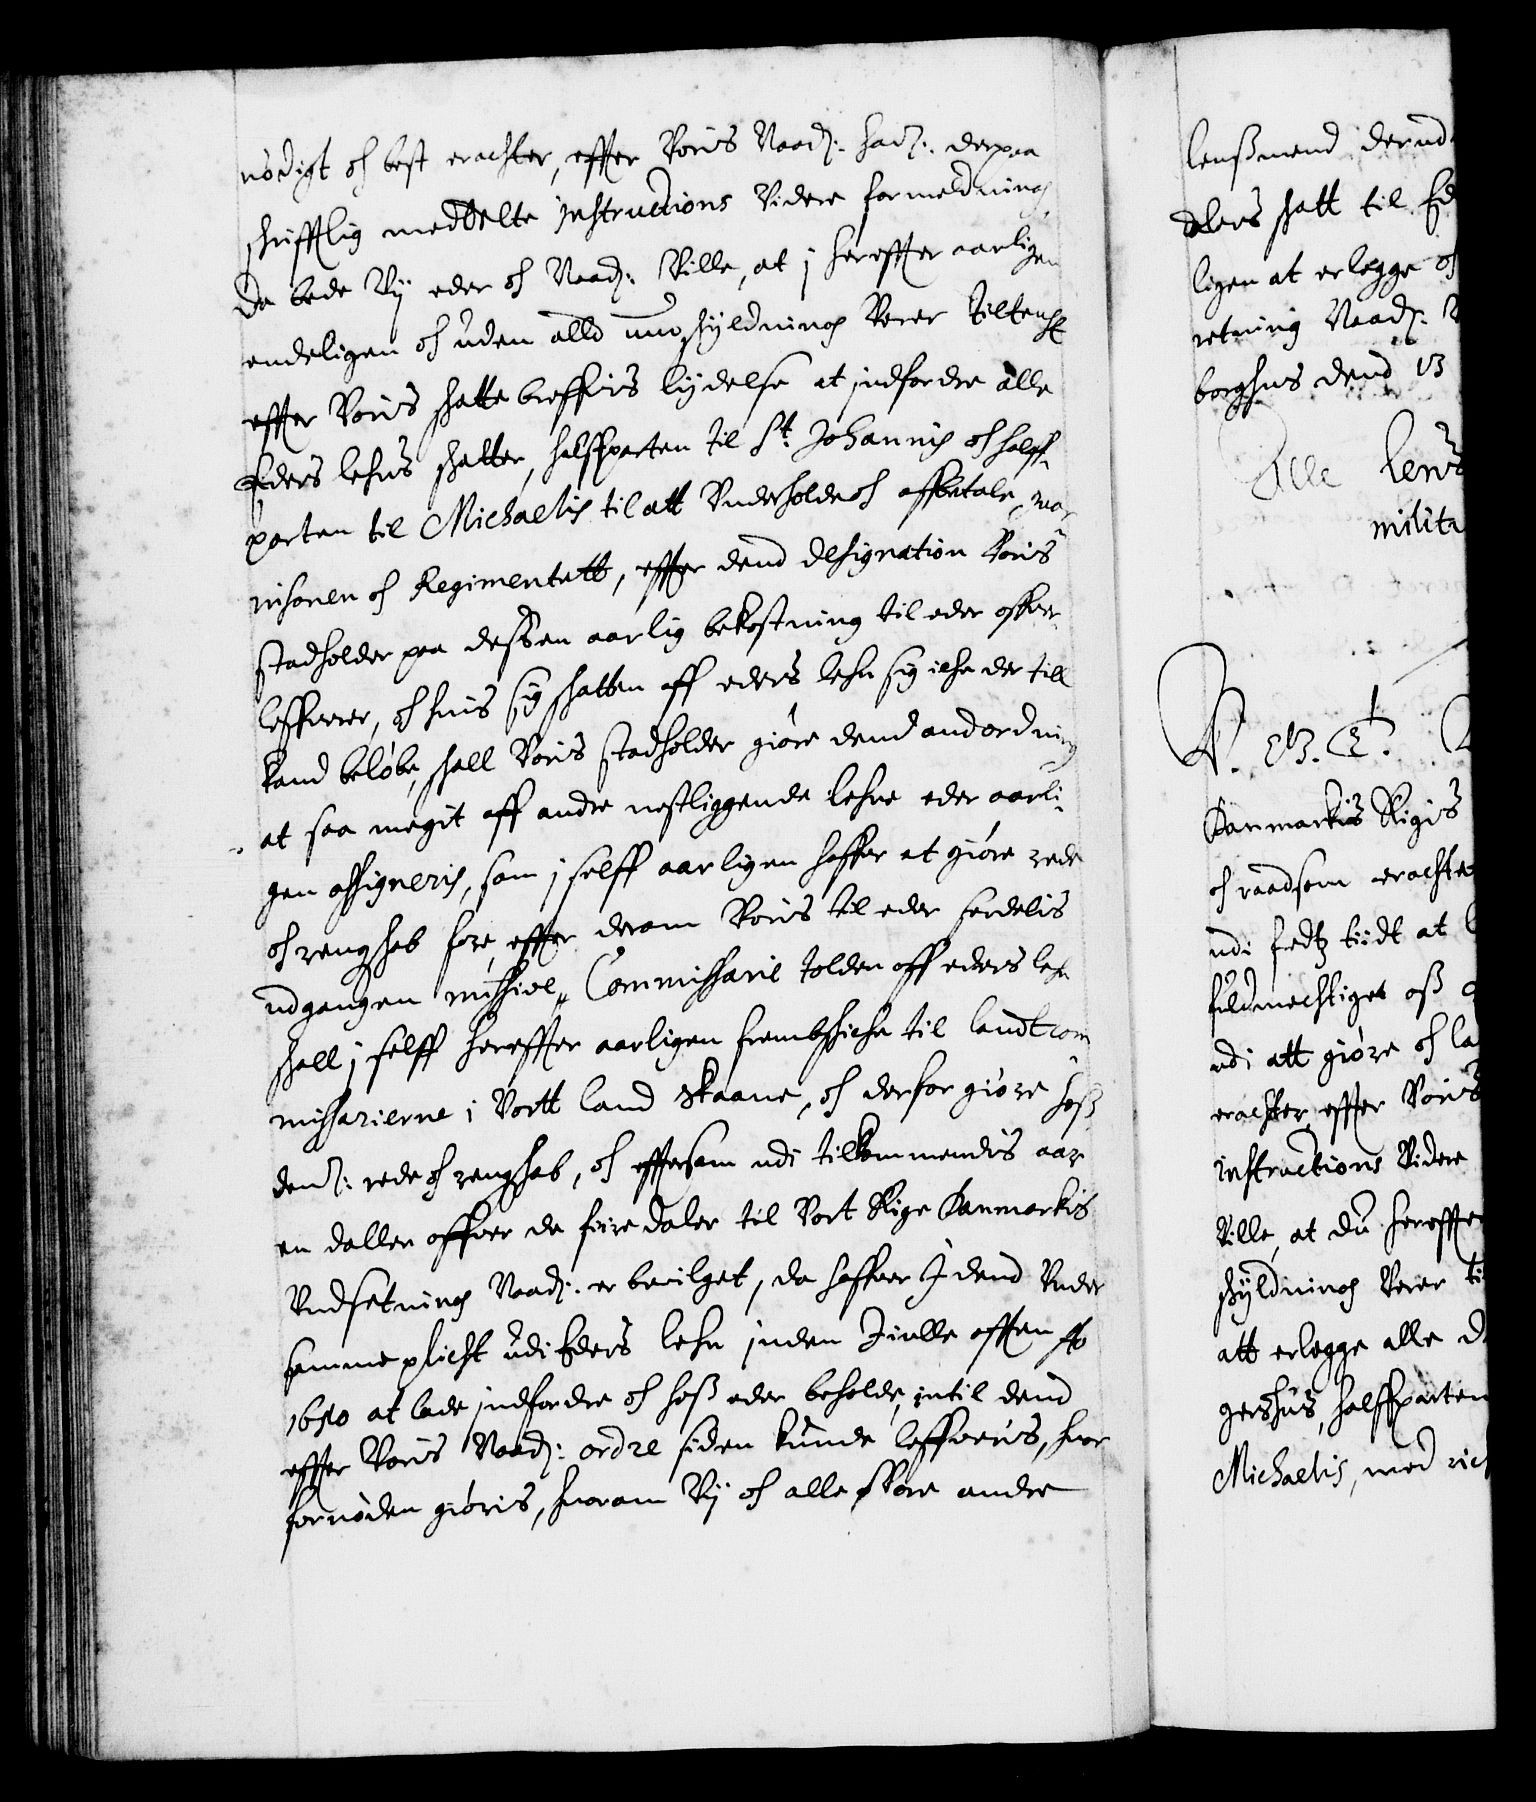 nødigt oc best eracter, effter Voris Naad: had: derpaa
schrifftlig meddelte Instructions Videre formeldning,
Da bede Vij eder oc Naad: Ville, at j hereffter aarligen
endeligen oc uden alld undschyldning Verer tiltenckt
effter Voris schatte breffvis lydelse at indfordre alle
Eders lehns schatter, halffparten til St: Johannis oc halff-
parten til Michaelis til att Underholde oc affbetale, gar
nisonen oc Regimentett, effter dend designation Voris
stadholder paa dessen aarlig bekostning til eder offver-
lefferer, oc huis sig schatten aff eders lehn sig iche der till
kand beløbe, schall Voris stadholder giøre dend andordning
at saa megit aff andre nestliggende lehne eder aarli-
gen assigneris, som j selff aarligen haffver at giøre rede
oc rengschab fore, effter derom Voris til eder serdelis
udgangen missive, Commissarie tolden aff eders lehn
schall j selff hereffter aarligen frembschiche til landtcom
missarierne i Vortt land Skaane, oc derfor giøre hoss
dend: rede oc rengschab, oc effersom udi tilkommendis aar
en daller offver de fiire daler til Vort Rige Danmarkis
Undsetning Naad: er bevilget, da haffver I dend Under
samme plicht udi Eders lehn inden Juulle afften Ao
1650 at lade indfordre oc hoss eder beholde, intil dend
effter Voris Naad: ordre siden kunde leffveris, huor
fornøden giøris, huorom Vij oc alle Vore andre
lenssmend derud
dlers skatt til Ed
ligen at erlegge oc
retning Naad: V
borghus dend 13
Alle lens
milita
P. G. T.
Danmarkis Rigis
oc raadsom eracte
udi fredtz tiidt at
fuldmechtiget oss
udi att giøre oc la
eracter, effter Voris
instructions Videre
Ville, at du hereffter
schyldning Verer ti
att erlegge alle d
gershus, halffparten
Michaelis, med ric